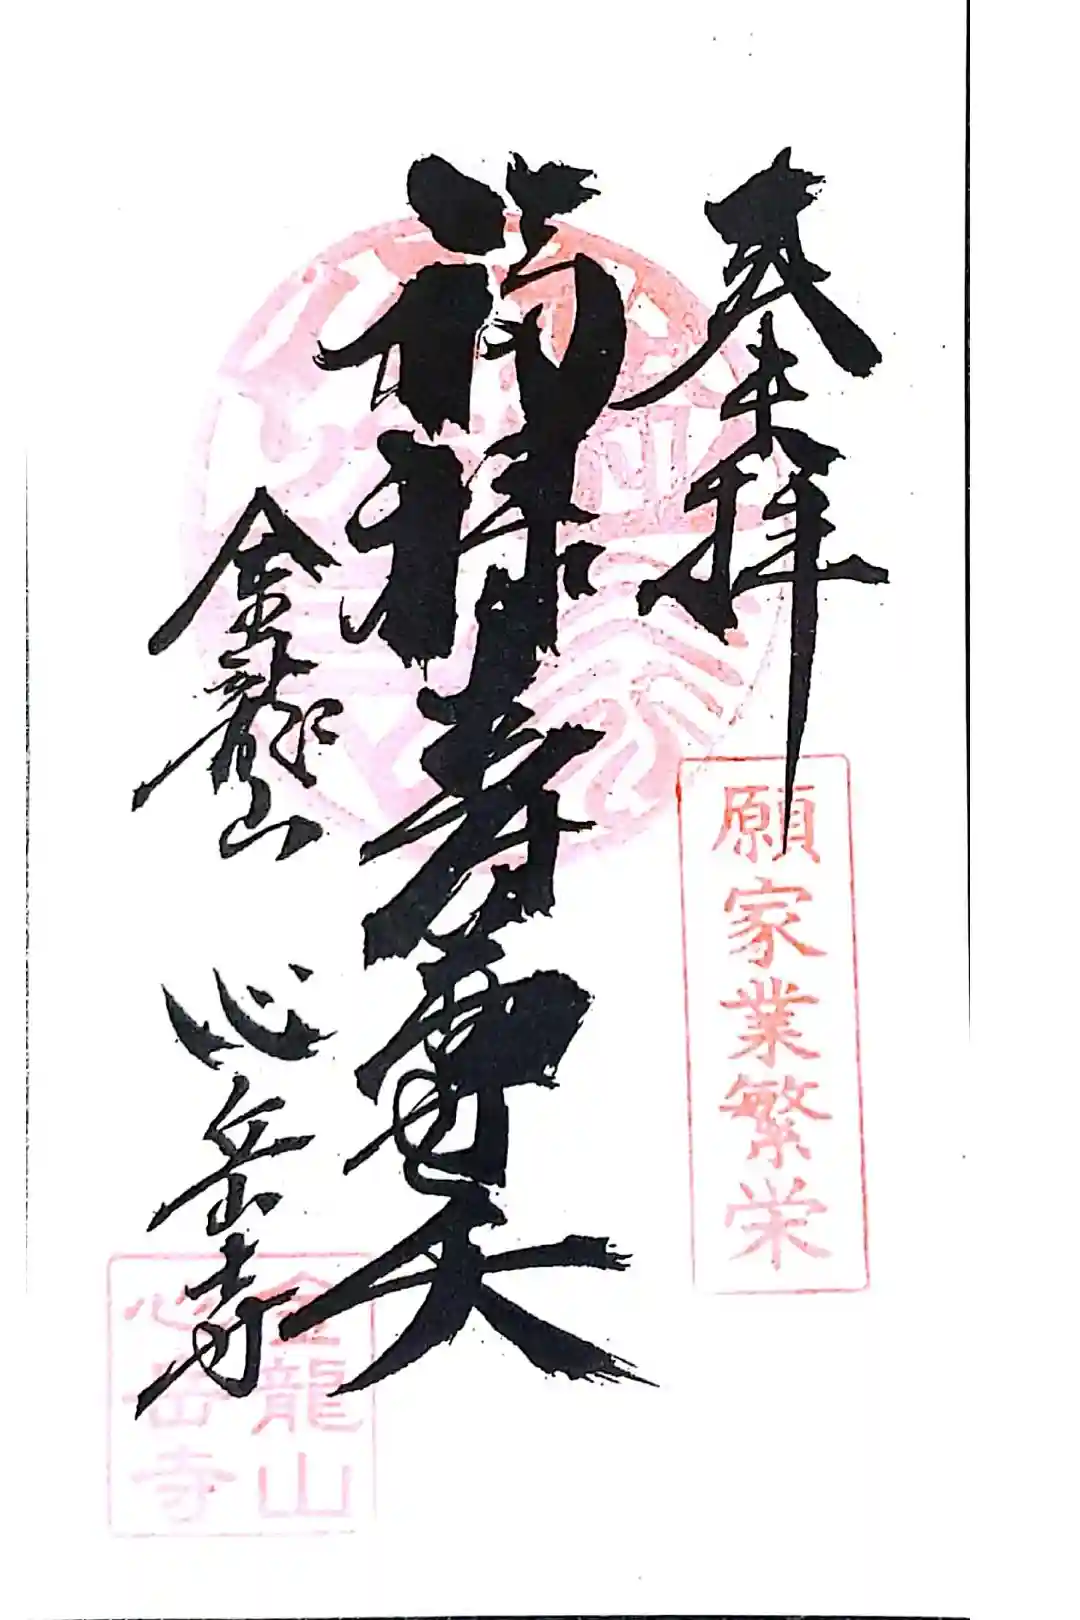 奉拝
願家業繁栄
福禄寿尊天
金龍山 心岳寺
金龍山
心岳寺